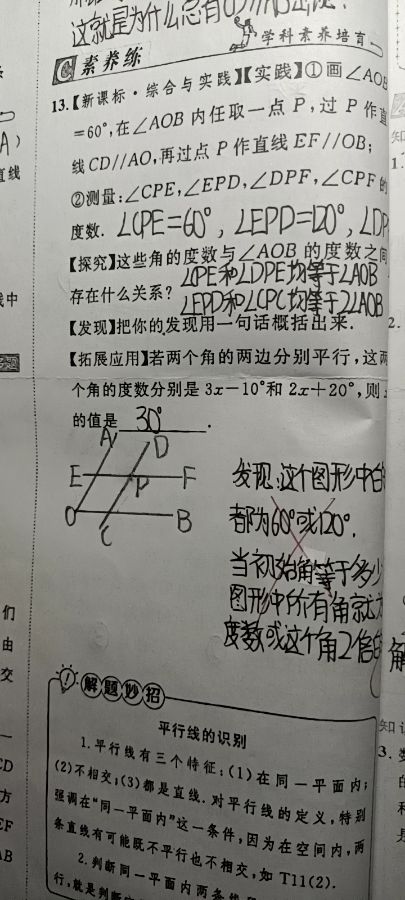 这就是为什么总有CD//AO
素养练
学科素养培育
13.【新课标·综合与实践】【实践】①画∠AOB
=60°,在∠AOB内任取一点P,过P作直
线CD//AO,再过点P作直线EF//OB;
②测量:∠CPE,∠EPD,∠DPF,∠CPF的
度数. ∠CPE=60°, ∠EPD=120°, ∠DP
【探究】这些角的度数与∠AOB的度数之间
存在什么关系? ∠CPE和∠DPE均等于∠AOB
∠EPD和∠CPC均等于2∠AOB
【发现】把你的发现用一句话概括出来.
【拓展应用】若两个角的两边分别平行,这两
个角的度数分别是3x-10°和2x+20°,则
的值是 30° .
A D
E P F
O B
C
发现:这个图形中的
都为60°或120°.
当初始角等于多少
图形中所有角就为
度数或这个角2倍的
解题妙招
平行线的识别
1.平行线有三个特征:(1)在同一平面内;
(2)不相交;(3)都是直线.对平行线的定义,特别
强调在“同一平面内”这一条件,因为在空间内,两
条直线有可能既不平行也不相交,如T11(2).
2.判断同一平面内两条线
行,就是判断
A)
直线
线中
们
由
交
一
CD
方
EF
AB
知
1.
2.
解
知识
3.
的